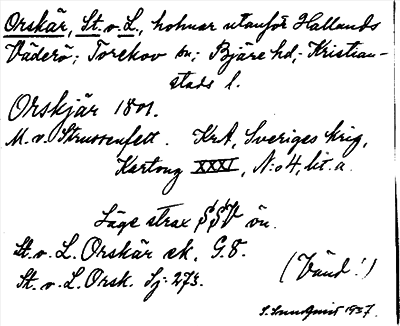 Orskär, St. o. L., holmar utanför Hallands
Väderö; Torekov sn; Bjäre hd; Kristian-
stads l.
Orskjär 1801.
M. v. Strussenfelt. KrA, Sveriges krig,
Kartong XXXI, N:o 4, lit. a.
Läge strax SSV ön.
St. o. L. Orskär ek. G. 8.
St. o. L. Orsk. Sj. 273.
(Vänd!)
S. Lundqvist 1937.